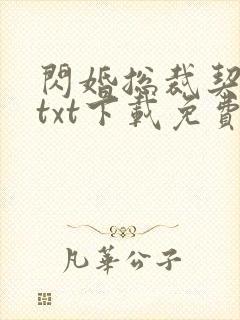 閃婚總裁契
txt下載免費
凡華公子